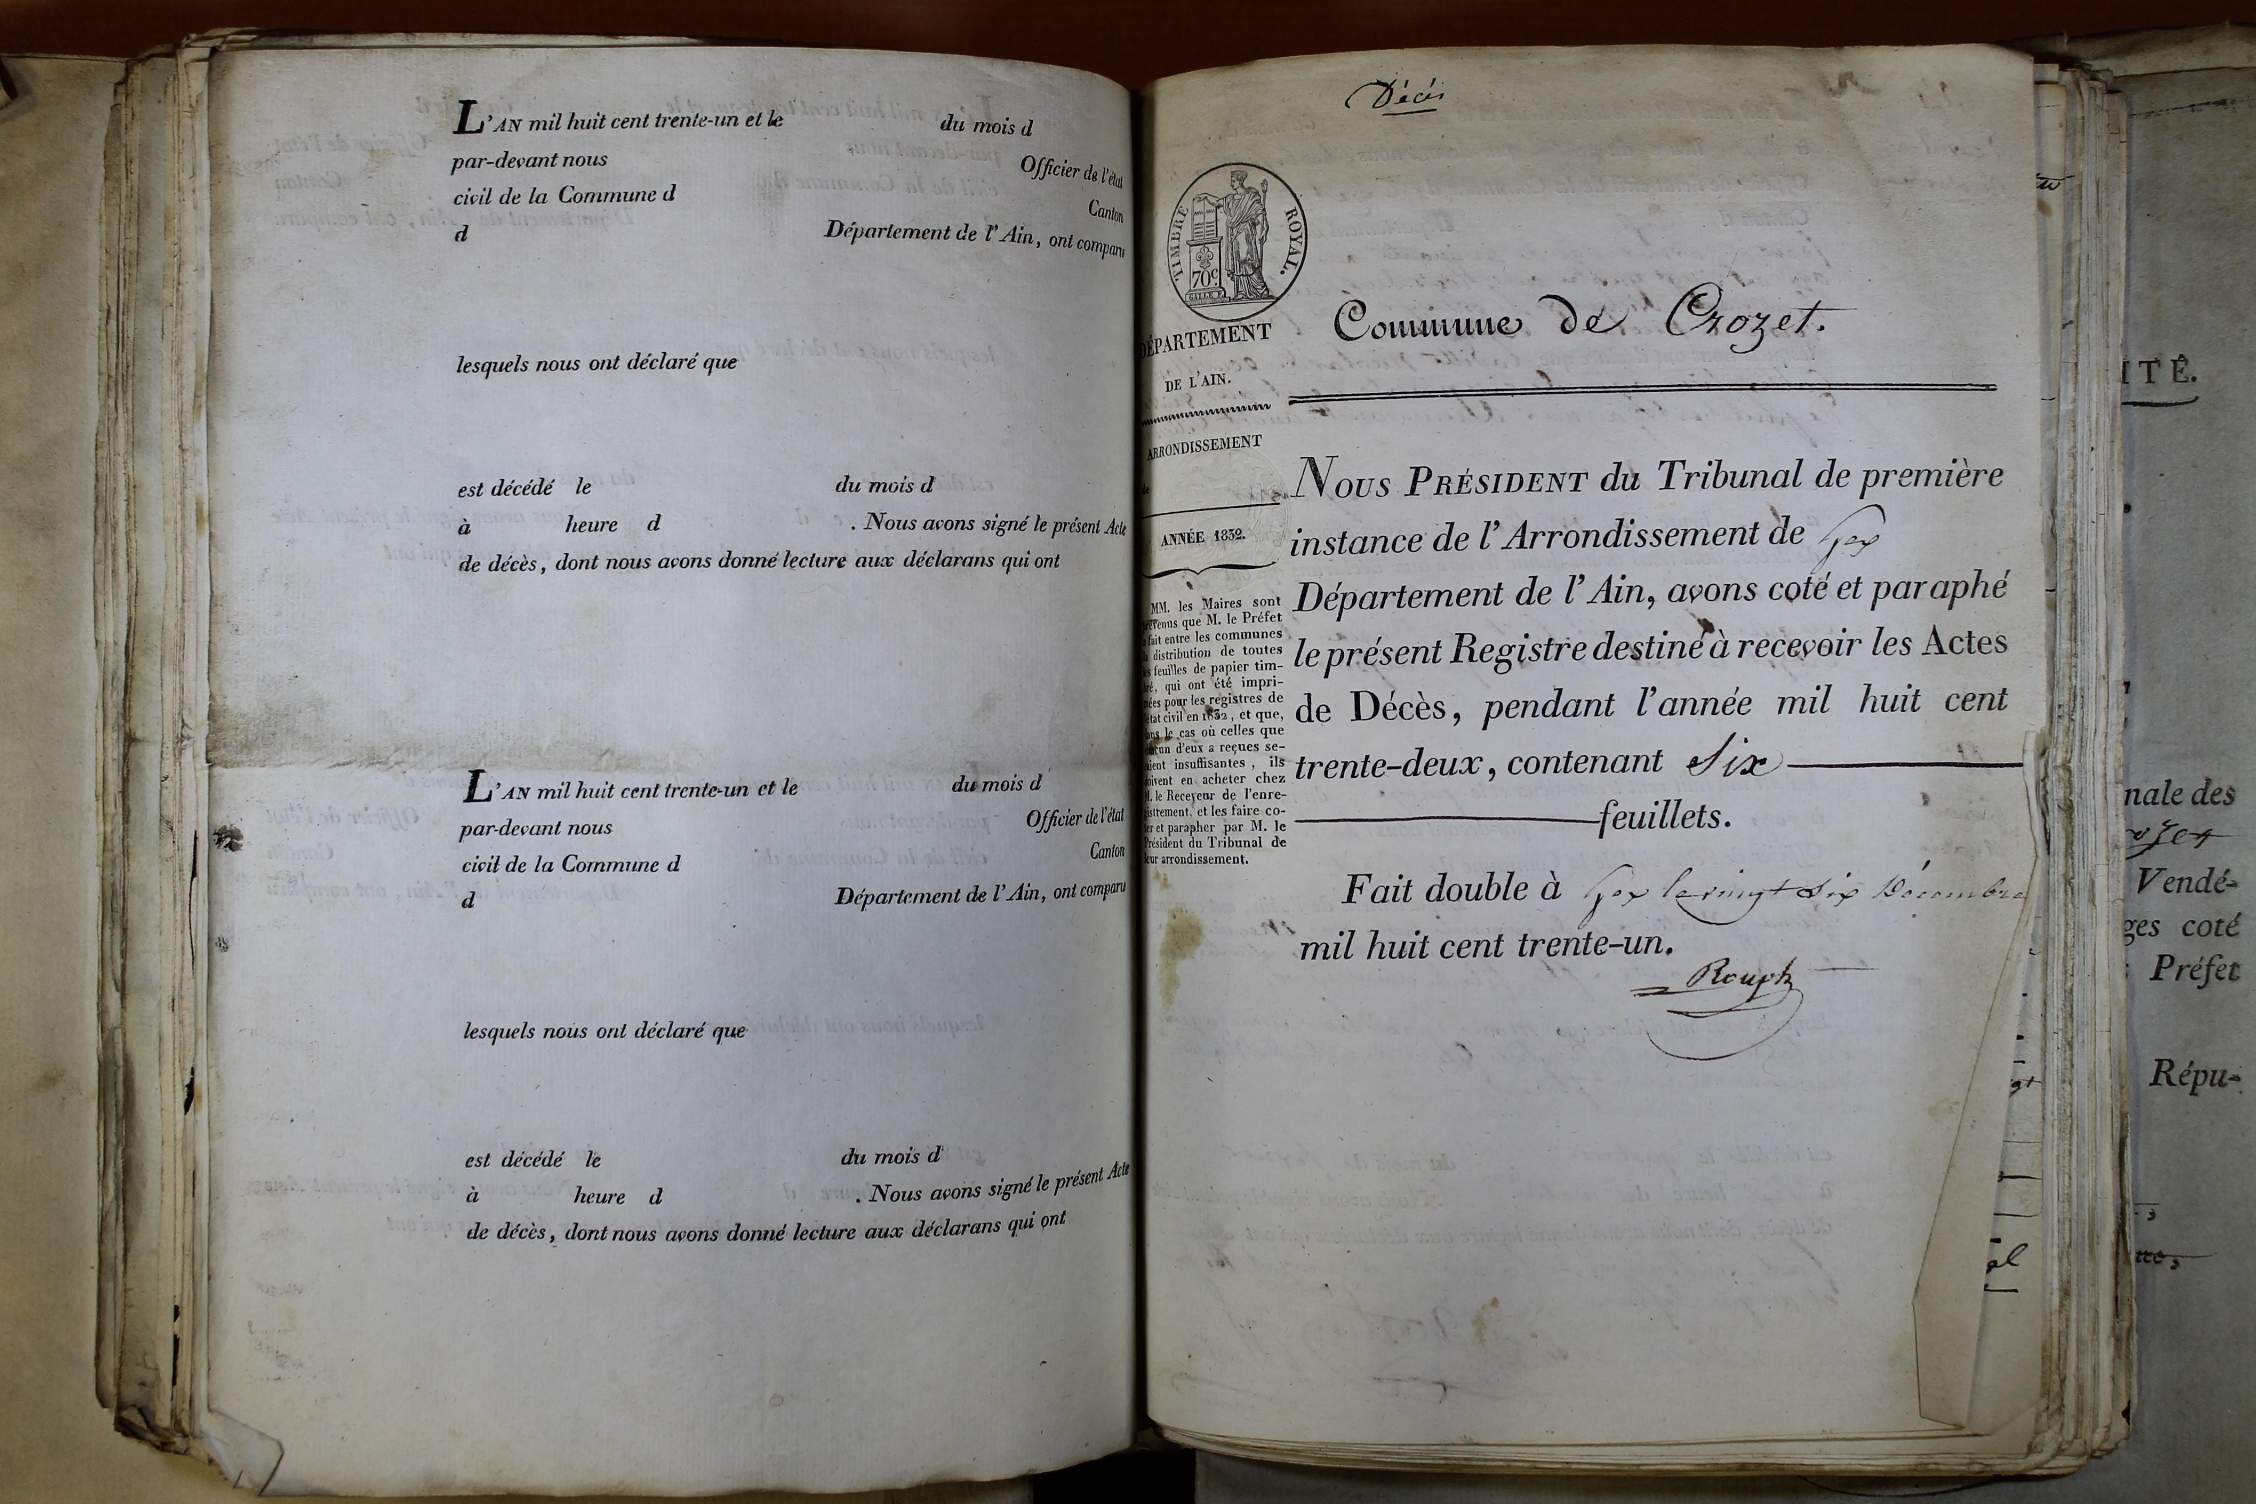 L'AN mil huit cent trente-un et le du mois d
par-devant nous Officier de l'état
civil de la Commune d Canton
d Département de l'Ain, ont comparu
lesquels nous ont déclaré que
est décédé le du mois d
à heure d . Nous avons signé le présent Acte
de décès, dont nous avons donné lecture aux déclarans qui ont
L'AN mil huit cent trente-un et le du mois d
par-devant nous Officier de l'état
civil de la Commune d Canton
d Département de l'Ain, ont comparu
lesquels nous ont déclaré que
est décédé le du mois d
à heure d . Nous avons signé le présent Acte
de décès, dont nous avons donné lecture aux déclarans qui ont
Décès
TIMBRE ROYAL.
70c.
DÉPARTEMENT
DE L'AIN.
ARRONDISSEMENT
de
ANNÉE 1832.
MM. les Maires sont
prévenus que M. le Préfet
a fait entre les communes
la distribution de toutes
les feuilles de papier tim-
bré, qui ont été impri-
mées pour les registres de
l'état civil en 1832, et que,
dans le cas où celles que
chacun d'eux a reçues se-
raient insuffisantes, ils
doivent en acheter chez
M. le Receveur de l'enre-
gistrement, et les faire co-
ter et parapher par M. le
Président du Tribunal de
leur arrondissement.
Commune de Crozet.
NOUS PRÉSIDENT du Tribunal de première
instance de l'Arrondissement de Gex
Département de l'Ain, avons coté et paraphé
le présent Registre destiné à recevoir les Actes
de Décès, pendant l'année mil huit cent
trente-deux, contenant Six
feuillets.
Fait double à Gex le vingt Six Décembre
mil huit cent trente-un.
Rouph
ITÉ.
nale des
Vendé-
ges coté
Préfet
Répu-